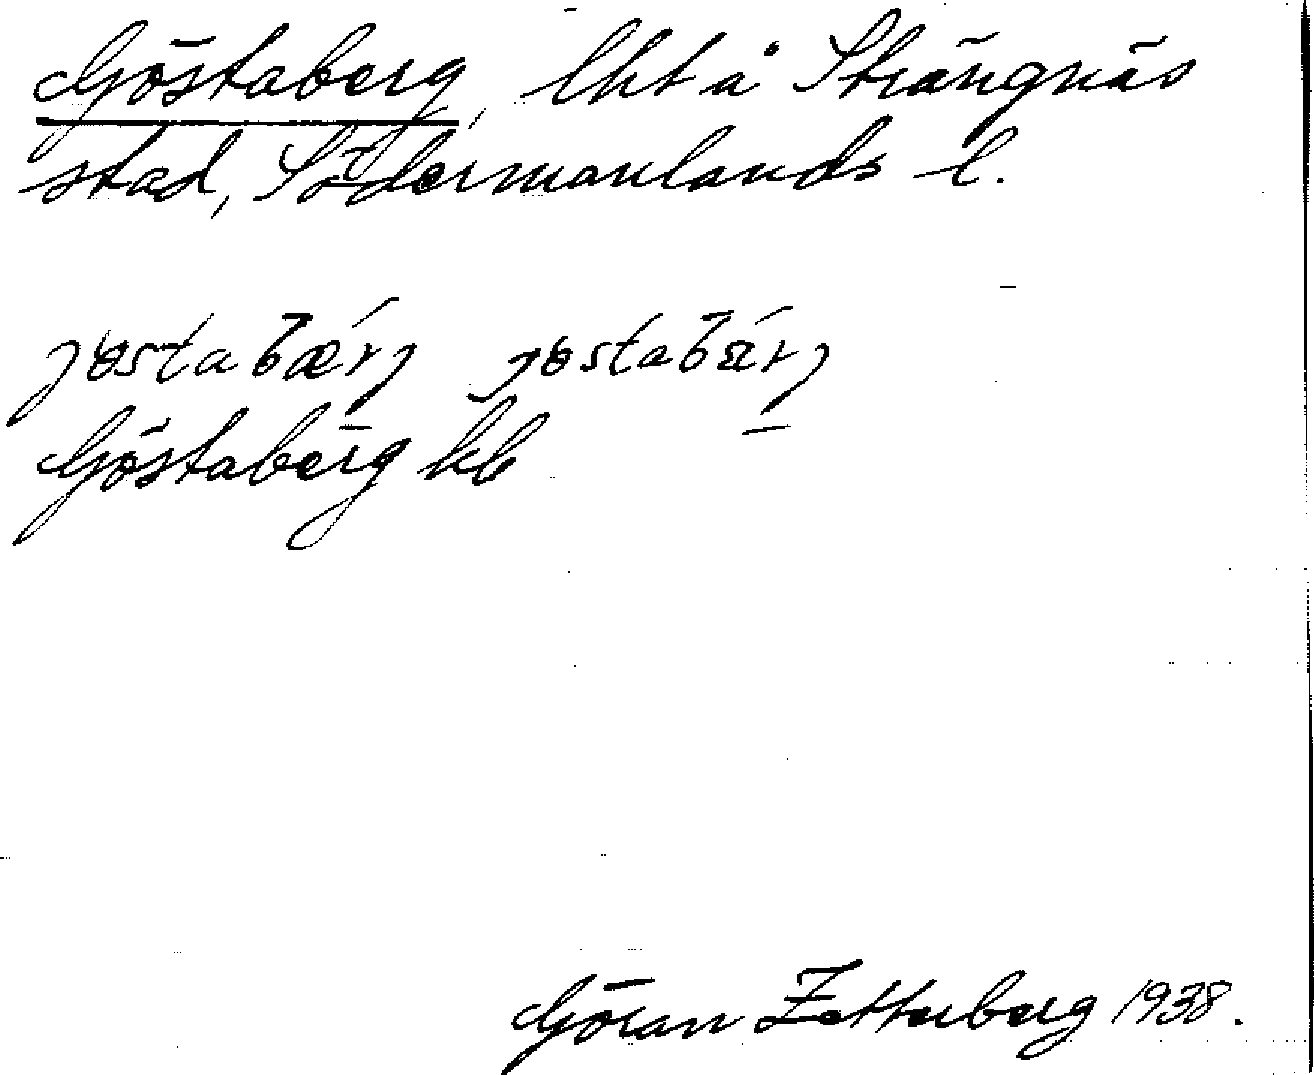 Göstaberg, lht å Strängnäs
stad, Södermanlands l.
jɵstabærj jɵstabærj
Göstaberg kb
Göran Zetterberg 1938.